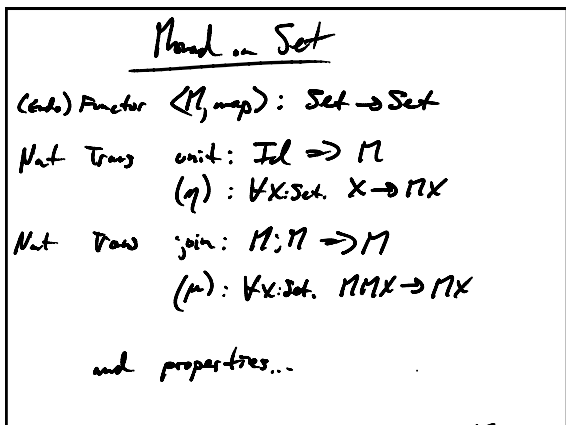 Monad on Set
(Endo) Functor <M, map> : Set → Set
Nat Trans unit : Id => M
(η) : ∀X:Set. X → MX
Nat Trans join : M;M => M
(μ) : ∀X:Set. MMX → MX
and properties...